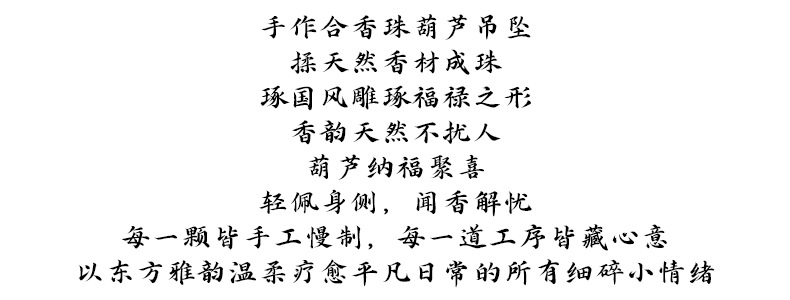 手作合香珠葫芦吊坠
揉天然香材成珠
琢国风雕琢福禄之形
香韵天然不扰人
葫芦纳福聚喜
轻佩身侧，闻香解忧
每一颗皆手工慢制，每一道工序皆藏心意
以东方雅韵温柔疗愈平凡日常的所有细碎小情绪